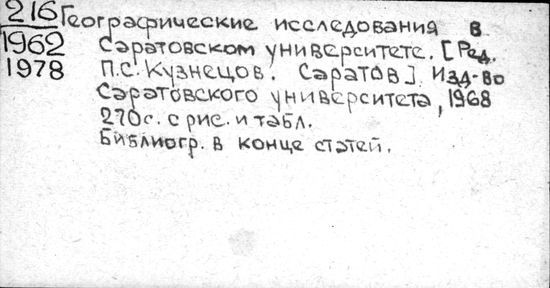 216 Географические исследования в
1962 Саратовском университете. [Ред.
1978 П.С. Кузнецов. Саратов]. Изд-во
Саратовского университета, 1968
270с. с рис. и табл.
Библиогр. в конце статей.